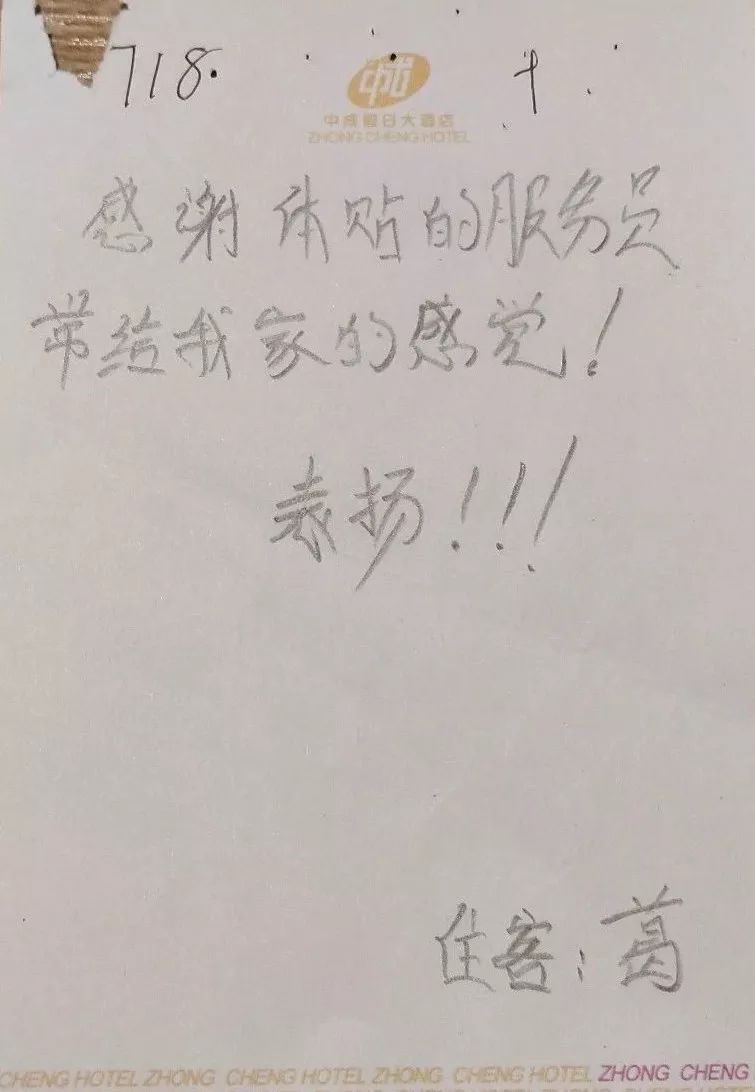 718.
中成假日大酒店
ZHONG CHENG HOTEL
感谢体贴的服务员
带给我家的感觉!
表扬!!!
住客:葛
CHENG HOTEL ZHONG CHENG HOTEL ZHONG CHENG HOTEL ZHONG CHENG